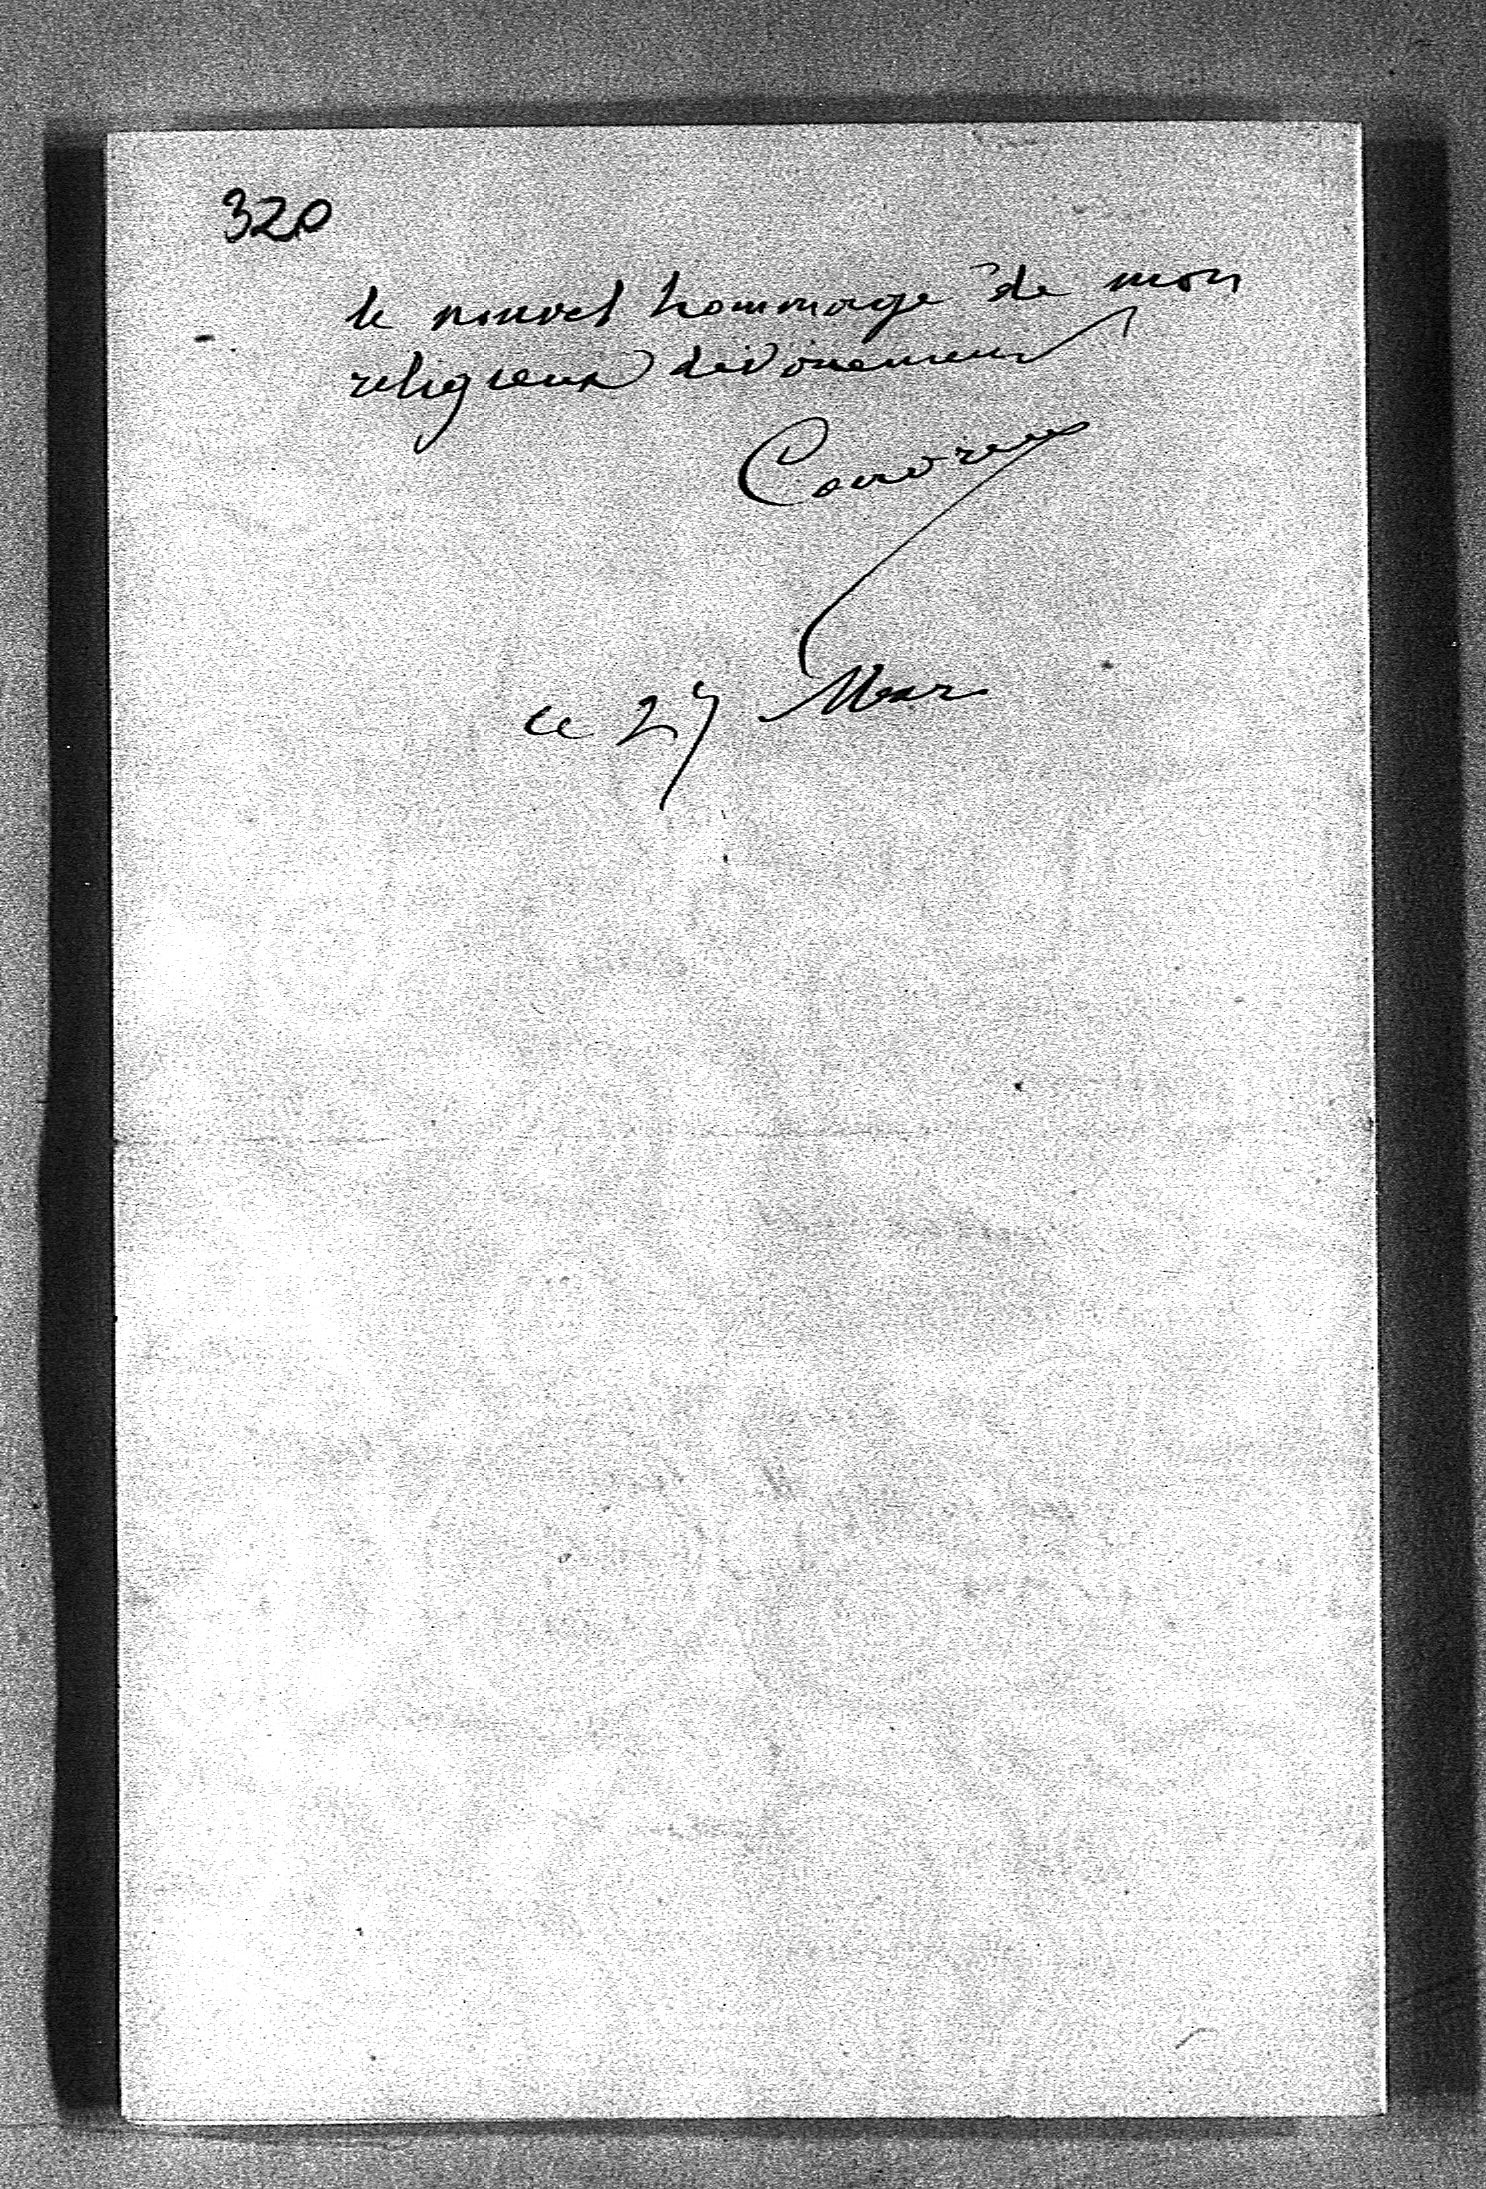 320
le nouvel hommage de mon
religieux dévouement
Couvreux
ce 27 Mars